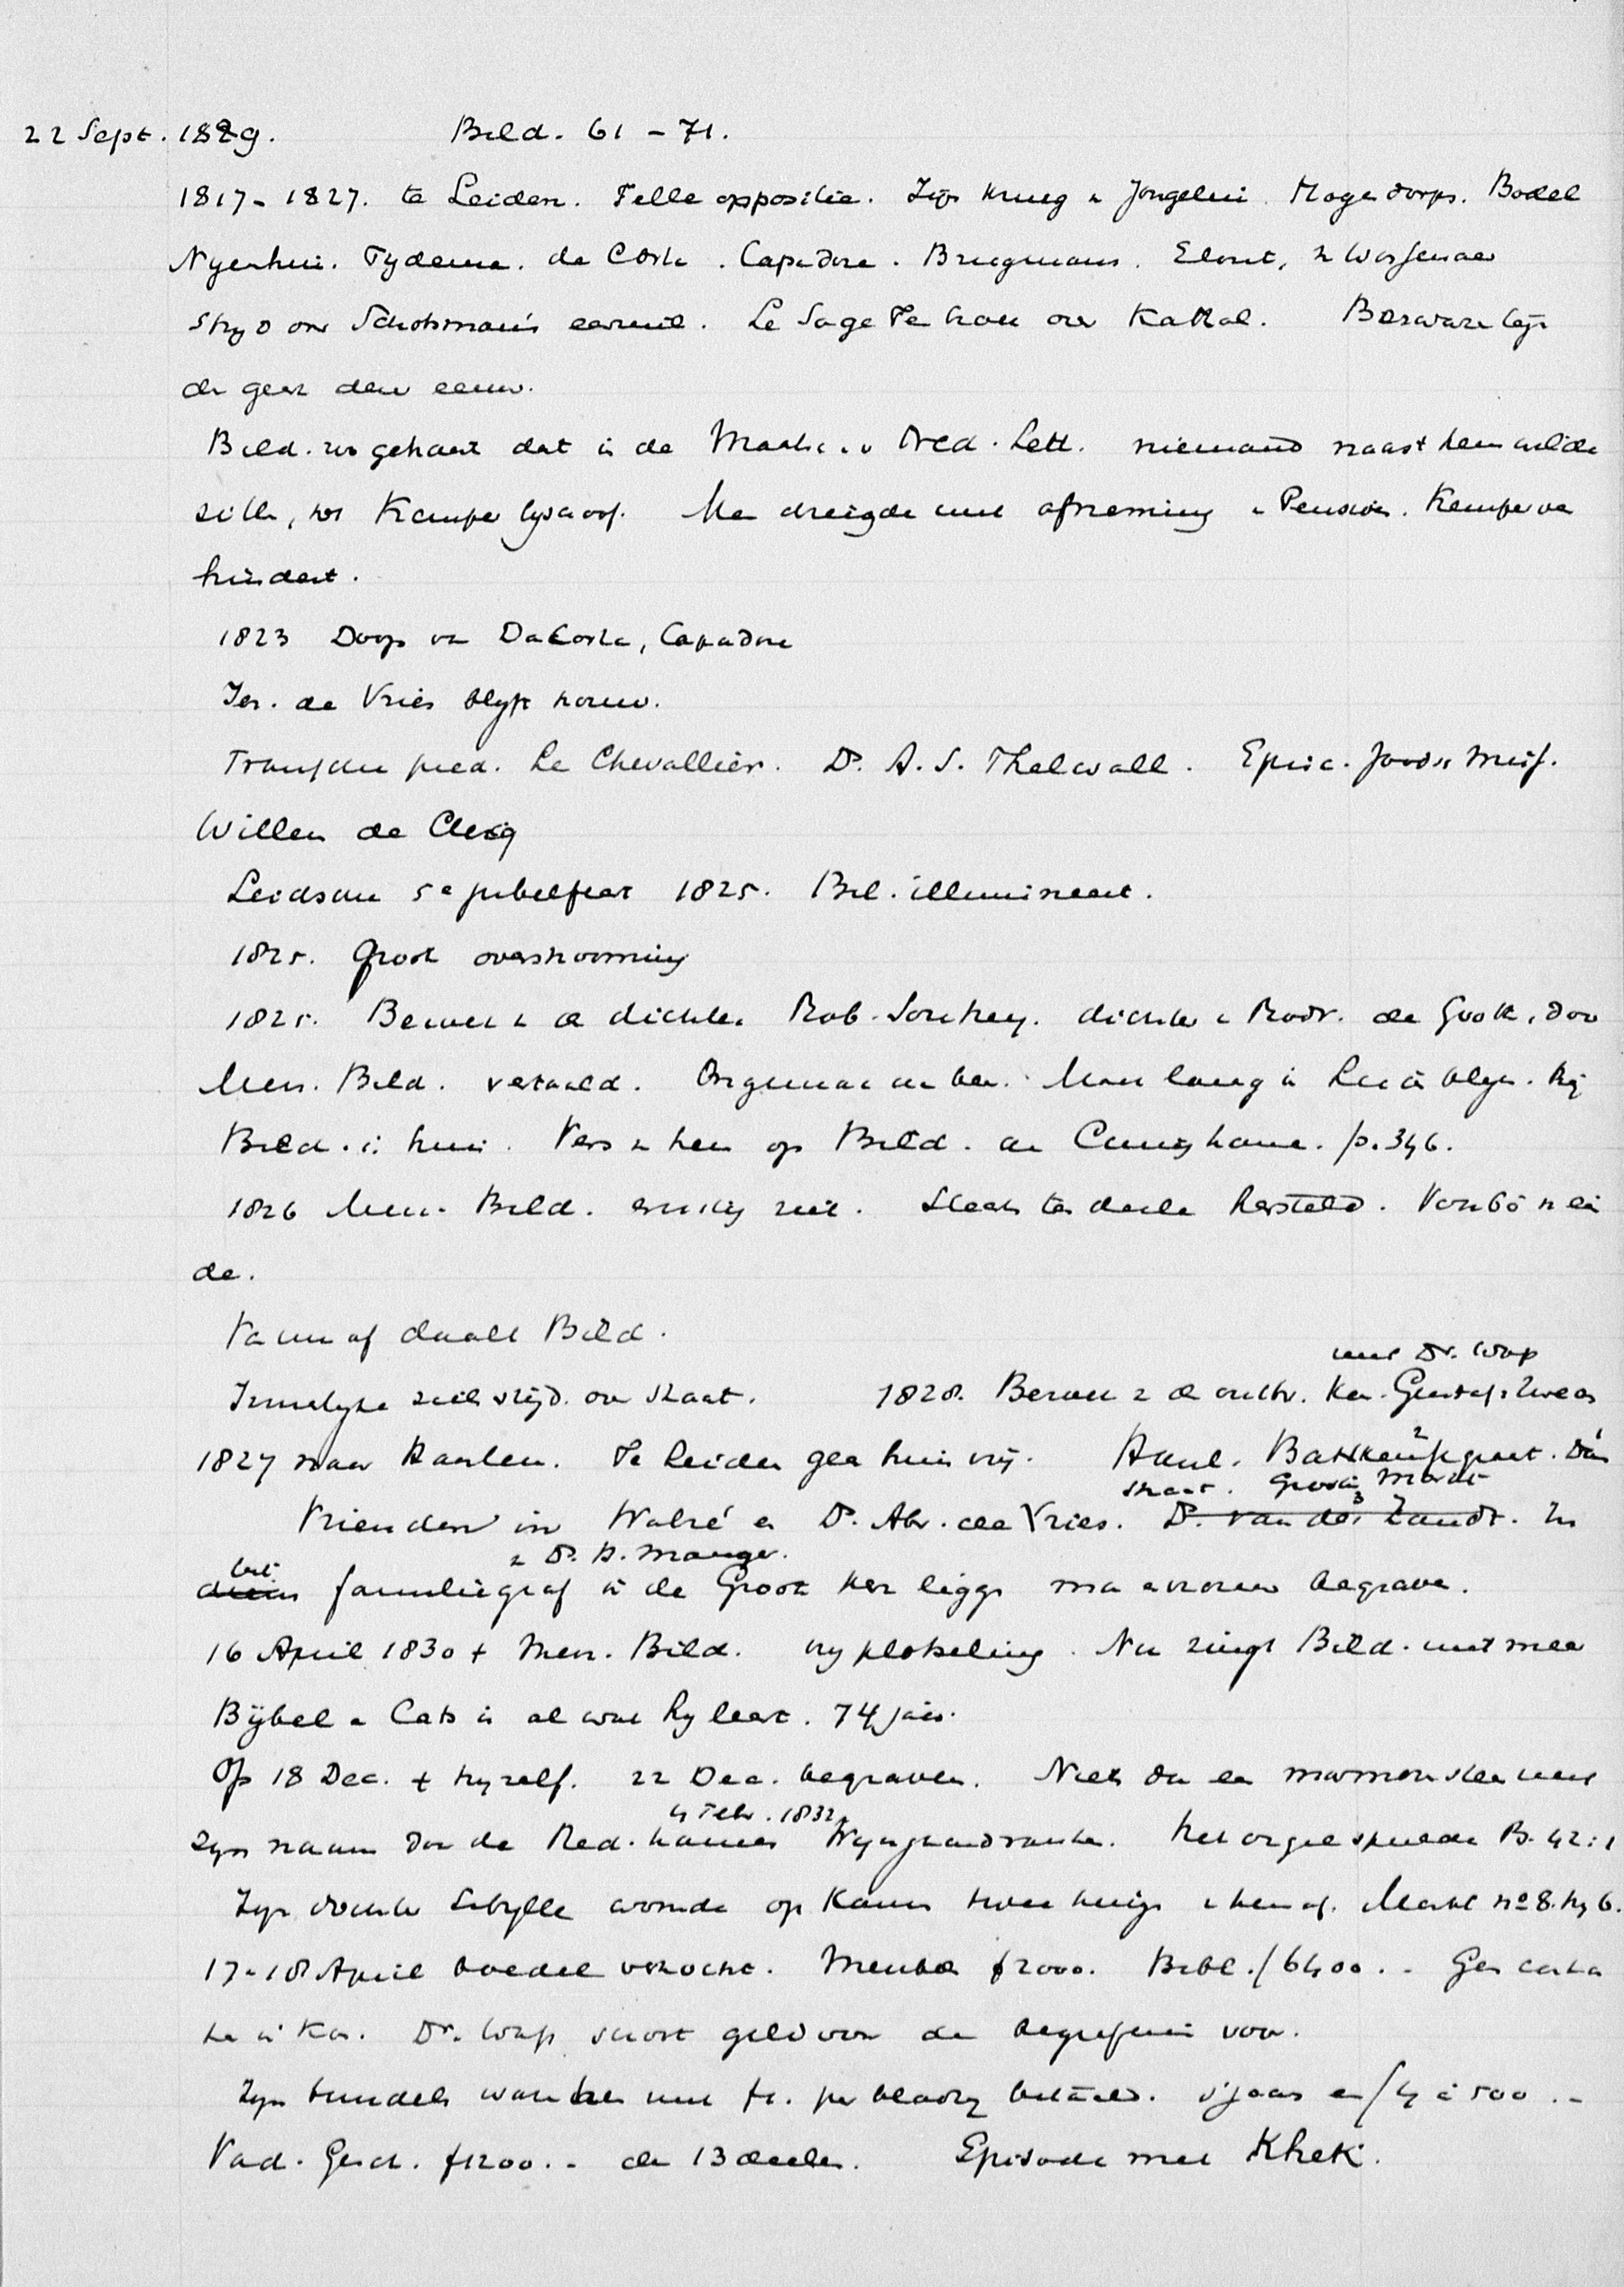 22 Sept. 1829. Bild. 61 - 71.
1817 - 1827. te Leiden. Felle oppositie. Zijn kring v Jongelui. Hogendorps. Bodel
Nyenhui. Tydeman. da Costa. Capadose. Brugmans. Elout, v Wassenaer
Stryd over Schotsman's eerzuil. Le Sage Ten Broek over Kathol. Bezwaren tegn
de geest dezer eeuw.
Bild. zo gehaat dat in de Maats. v Ned. Lett. niemand naast hem wilde
zitten, tot Kemper bijschoof. Men dreigde met afneming v Pensioen. Kemper ver
hindert.
1823 Doop van Da Costa, Capadose
Jer. de Vries blyft trouw.
Fransche pred. Le Chevallier. Dr. A. S. Thelwall. Episc. Joodse Miss.
Willem de Clercq
Leidsche 5e jubelfeest 1825. Bil. illumineert.
1825. Groote overstrooming
1825. Bezoek v de dichter Rob. Southey. dichter v Rodr. de Goth, door
Mevr. Bild. vertaald. Ongemak aan been. Moet lang in Leiden blyven. by
Bild. in huis. Vers v hem op Bild. aan Cuninghame. p. 346.
1826 Mevr. Bild. ernstig ziek. Slechts ten deele hersteld. Voorbode v ein
de.
Van nu af daalt Bild.
met Dr. Wap
Innerlyke zielsstrijd. over staat. 1828. Bezoek v de onttr. Kon. Gustaf v Zweden
1827 naar Haarlem. Te Leiden geen huis vrij. Haarl.
straat. Groote Markt
Vrienden in Walré en Dr. Abr. de Vries. Dr. van der Zandt. In
v Dr. H. Manger.
het
diens familiegraf in de Groote Kerk liggen man en vrouw begraven.
16 April 1830 † Mevr. Bild. vry plotseling. Nu zingt Bild. niet meer
Bijbel en Cats is al wat hy leest. 74 jaar.
Op 18 Dec. † hyzelf. 22 Dec. begraven. Niets dan een marmersteen met
4 Febr. 1832
zyn naam door de Red. kamer Wyngaardranken. het orgel speelde Ps. 42:1
Zyn dochter Sibylle woonde op kamers twee huizen v hem af. Markt no 8. hy 6.
17-18 April boedel verkocht. Meubels ƒ2000. Bibl. ƒ6400.- Geen
te in kas. Dr. Wap schoot geld voor de begrafenis voor.
Zyn bundels werden met ƒ1. per bladzy betaald. 's jaars een ƒ4 à 500.-
Vad. Gesch. ƒ1200.- de 13 deelen. Episode met